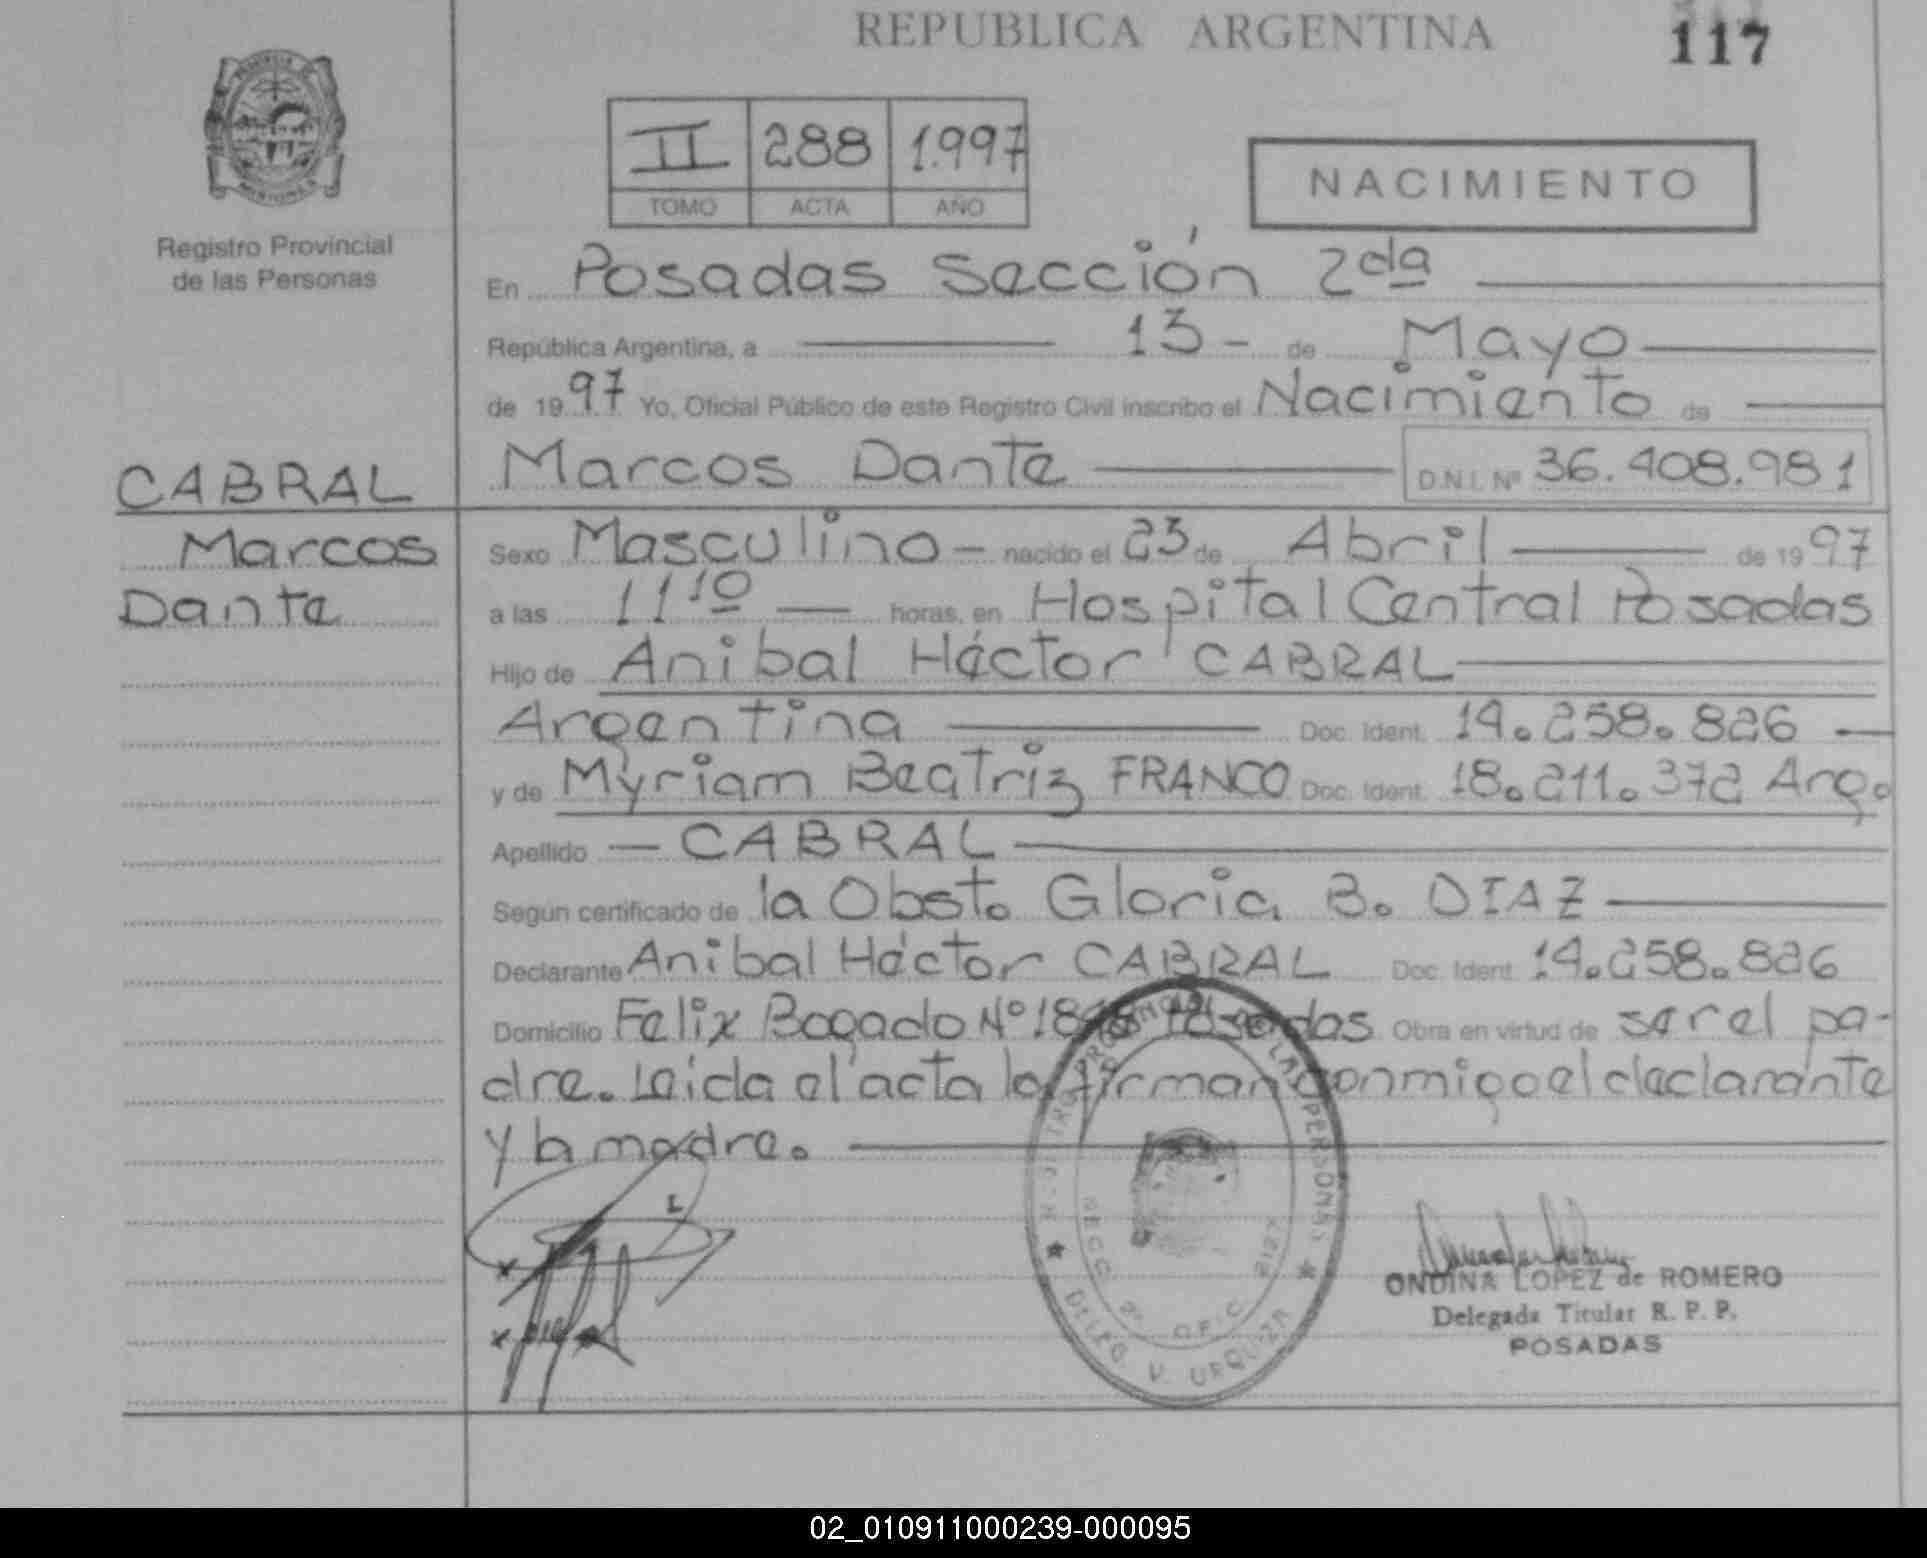 REPUBLICA ARGENTINA
117
II 288 1.997
TOMO ACTA AÑO
NACIMIENTO
Registro Provincial
de las Personas
En Posadas Sección 2da
República Argentina, a 13 - de Mayo
de 1997 Yo, Oficial Público de este Registro Civil inscribo el Nacimiento de
CABRAL
Marcos
Dante
Marcos Dante D.N.I. Nº 36.408.981
Sexo Masculino - nacido el 23 de Abril de 1997
a las 11 10 horas, en Hospital Central Posadas
Hijo de Anibal Héctor CABRAL
Argentina Doc. Ident. 14.258.826
y de Myriam Beatriz FRANCO Doc. Ident. 18.211.372 Arg.
Apellido - CABRAL
Según certificado de la Obst. Gloria B. DIAZ
Declarante Anibal Héctor CABRAL Doc. Ident. 14.258.826
Domicilio Felix Bogado Nº Posadas Obra en virtud de ser el pa-
dre. Leida el acta la firman conmigo el declarante
y la madre.
PROVINCIAL DE LAS PERSONAS
SECC. 2º OFIC.
DELEG. V. URQUIZA
ONDINA LOPEZ de ROMERO
Delegada Titular R. P. P.
POSADAS
02_010911000239-000095